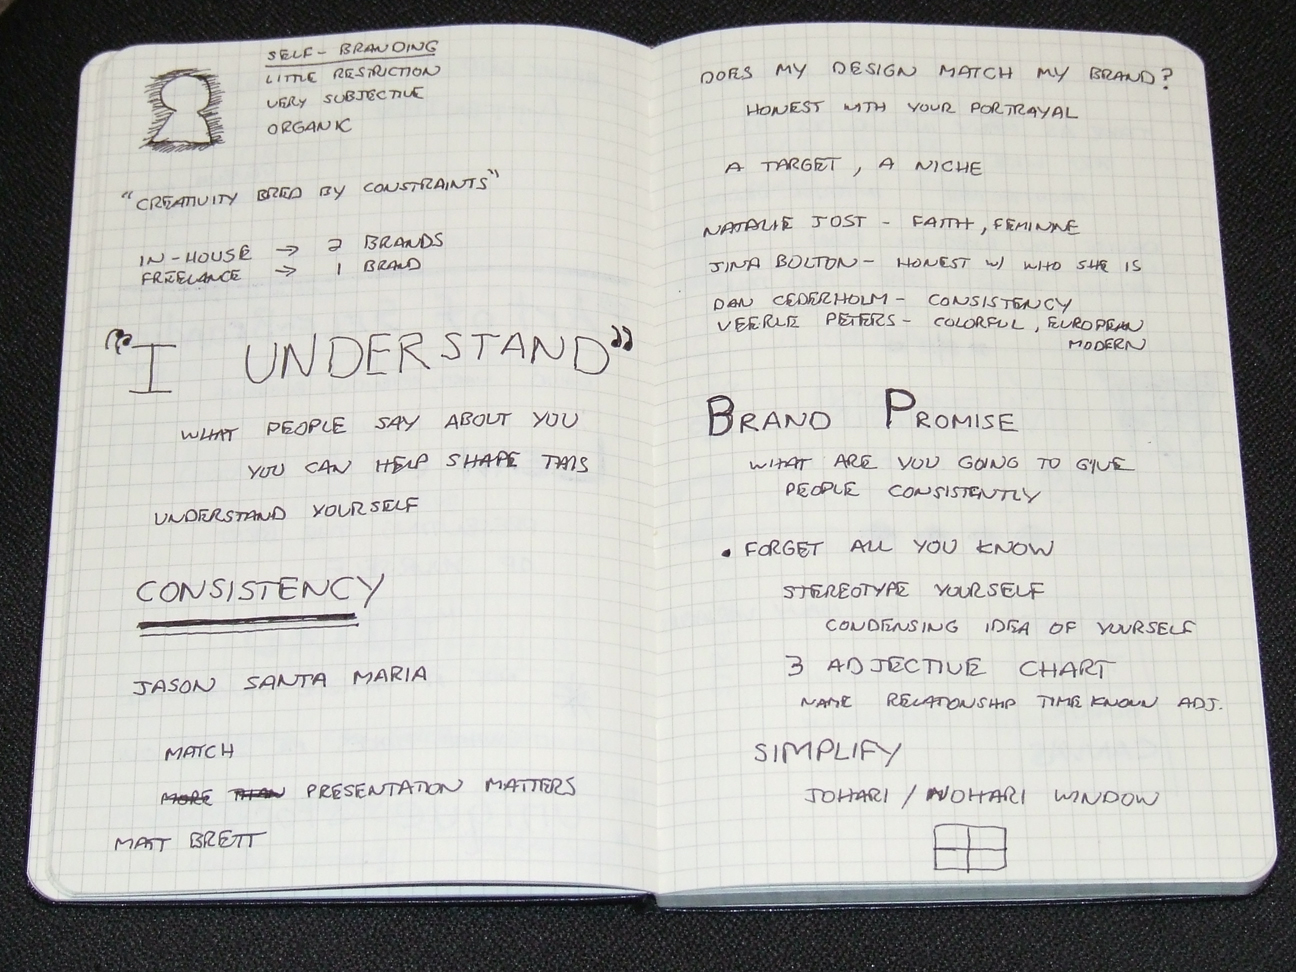 SELF-BRANDING
LITTLE RESTRICTION
VERY SUBJECTIVE
ORGANIC
"CREATIVITY BRED BY CONSTRAINTS"
IN-HOUSE → 2 BRANDS
FREELANCE → 1 BRAND
"I UNDERSTAND"
WHAT PEOPLE SAY ABOUT YOU
YOU CAN HELP SHAPE THIS
UNDERSTAND YOURSELF
CONSISTENCY
JASON SANTA MARIA
MATCH
MORE THAN PRESENTATION MATTERS
MATT BRETT
DOES MY DESIGN MATCH MY BRAND?
HONEST WITH YOUR PORTRAYAL
A TARGET, A NICHE
NATALIE JOST - FAITH, FEMININE
JINA BOLTON - HONEST W/ WHO SHE IS
DAN CEDERHOLM - CONSISTENCY
VEERLE PETERS - COLORFUL, EUROPEAN
MODERN
BRAND PROMISE
WHAT ARE YOU GOING TO GIVE
PEOPLE CONSISTENTLY
• FORGET ALL YOU KNOW
STEREOTYPE YOURSELF
CONDENSING IDEA OF YOURSELF
3 ADJECTIVE CHART
NAME RELATIONSHIP TIME KNOWN ADJ.
SIMPLIFY
JOHARI / NOHARI WINDOW